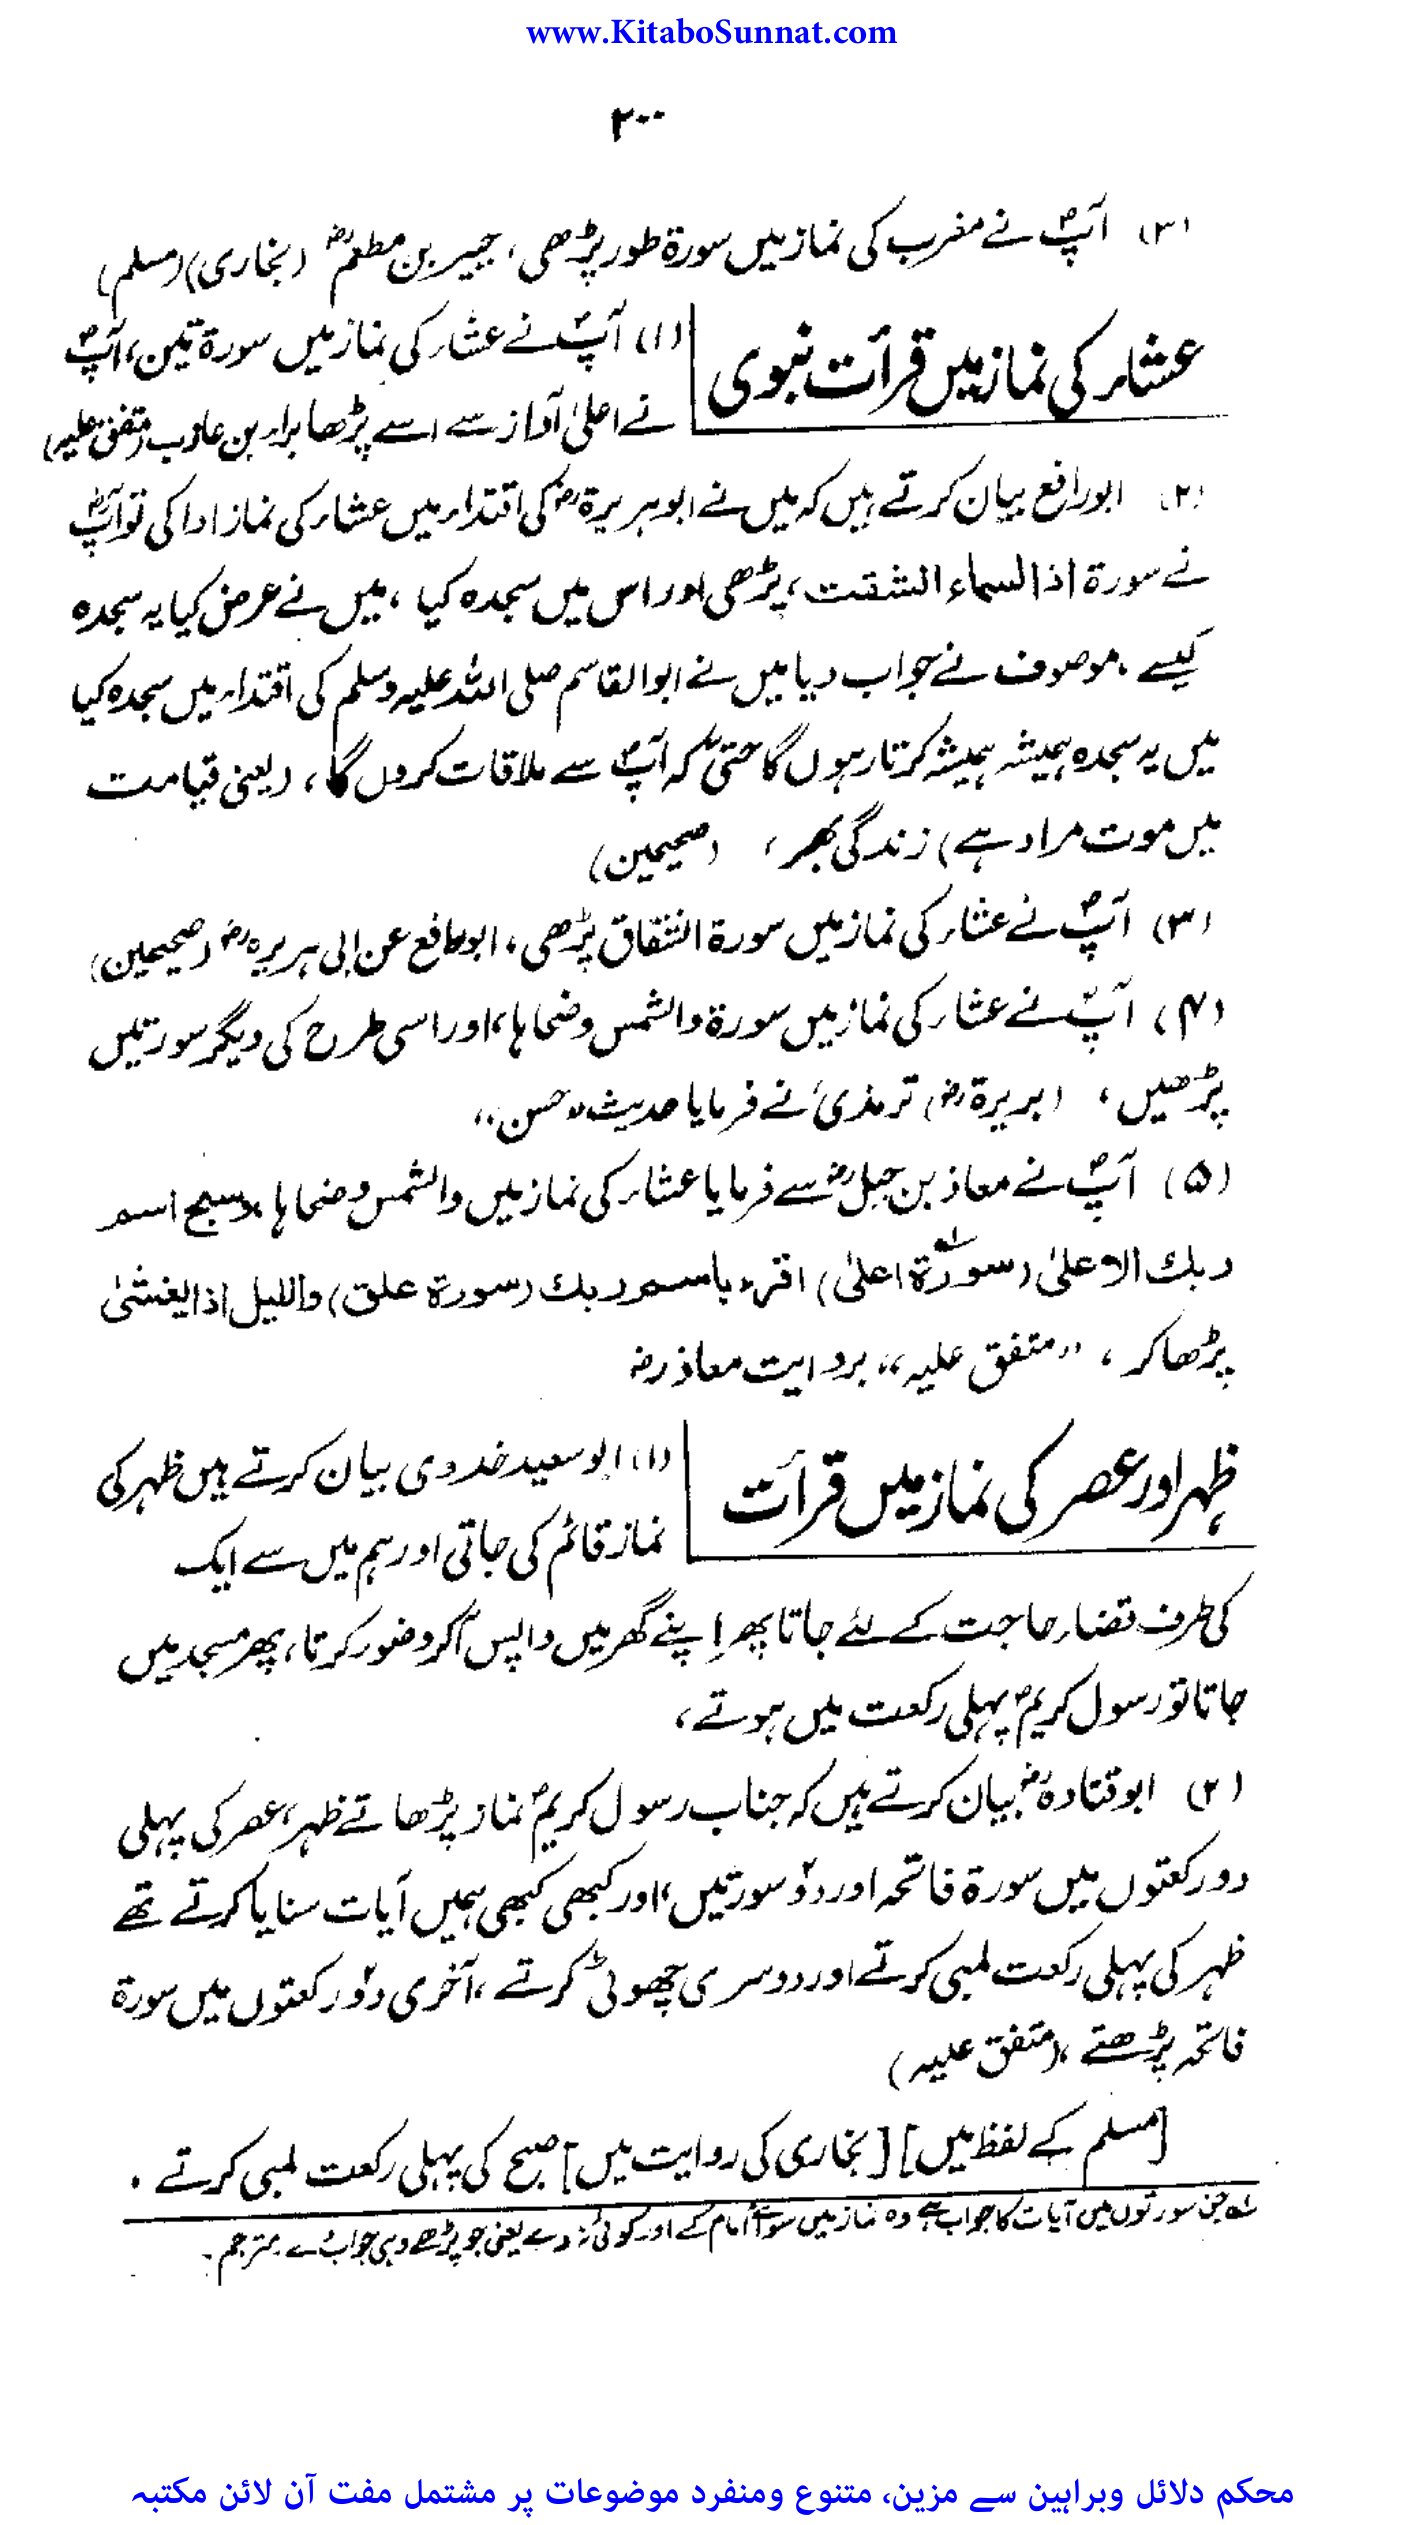 www.KitaboSunnat.com
۲۰۰
(۳) آپؐ نے مغرب کی نماز میں سورۃ طور پڑھی، جبیر بن مطعمؓ (بخاری)(مسلم)
عشاء کی نماز میں قرأت نبوی
(۱) آپؐ نے عشاء کی نماز میں سورۃ تین، آپؐ
نے اعلیٰ آواز سے اسے پڑھا براء بن عازب (متفق علیہ)
(۲) ابو رافع بیان کرتے ہیں کہ میں نے ابو ہریرۃؓ کی اقتداء میں عشاء کی نماز ادا کی تو آپؓ
نے سورۃ اذا السماء انشقت، پڑھی اور اس میں سجدہ کیا، میں نے عرض کیا یہ سجدہ
کیسے . موصوف نے جواب دیا میں نے ابوالقاسم صلی اللہ علیہ وسلم کی اقتداء میں سجدہ کیا
میں یہ سجدہ ہمیشہ ہمیشہ کرتا رہوں گا حتیٰ کہ آپؐ سے ملاقات کروں گا، (یعنی قیامت
میں موت مراد ہے) زندگی بھر، (صحیحین)
(۳) آپؐ نے عشاء کی نماز میں سورۃ انشقاق پڑھی، ابو رافع عن ابی ہریرہؓ (صحیحین)
(۴) آپؐ نے عشاء کی نماز میں سورۃ والشمس وضحاہا، اور اسی طرح کی دیگر سورتیں
پڑھیں، (بریرۃؓ) ترمذیؒ نے فرمایا حدیث "حسن"
(۵) آپؐ نے معاذ بن جبلؓ سے فرمایا عشاء کی نماز میں والشمس وضحاہا، سبح اسم
ربك الاعلیٰ (سورۃ اعلیٰ) اقرء باسم ربك (سورۃ علق) واللیل اذا یغشیٰ
پڑھا کر، "متفق علیہ" بروایت معاذؓ
ظہر اور عصر کی نماز میں قرأت
(۱) ابو سعید خدری بیان کرتے ہیں ظہر کی
نماز قائم کی جاتی اور ہم میں سے ایک
کی طرف قضاء حاجت کے لئے جاتا پھر اپنے گھر میں واپس آکر وضور کرتا، پھر مسجد میں
جاتا تو رسول کریمؐ پہلی رکعت میں ہوتے،
(۲) ابو قتادہؓ بیان کرتے ہیں کہ جناب رسول کریمؐ نماز پڑھاتے ظہر، عصر کی پہلی
دو رکعتوں میں سورۃ فاتحہ اور دو سورتیں، اور کبھی کبھی ہمیں آیات سنایا کرتے تھے
ظہر کی پہلی رکعت لمبی کرتے اور دوسری چھوٹی کرتے، آخری دو رکعتوں میں سورۃ
فاتحہ پڑھتے، (متفق علیہ)
[مسلم کے لفظ میں] [بخاری کی روایت میں] صبح کی پہلی رکعت لمبی کرتے .
لہ جن سورتوں میں آیات کا جواب ہے وہ نماز میں سوائے امام کے اور کوئی نہ دے یعنی جو پڑھے وہی جواب دے. مترجم.
محکم دلائل وبراہین سے مزین، متنوع ومنفرد موضوعات پر مشتمل مفت آن لائن مکتبہ